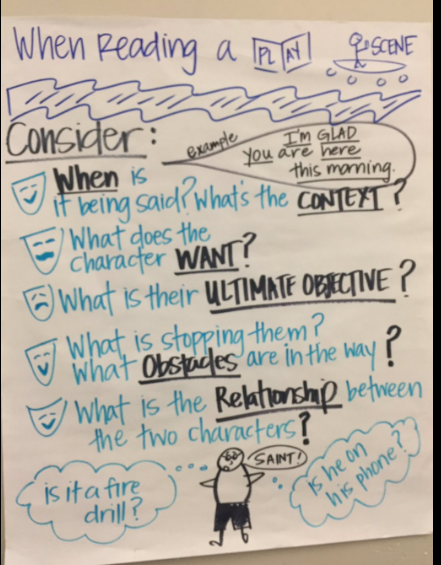 When Reading a PLAY
SCENE
Consider:
example
I'M GLAD
you are here
this morning.
When is
it being said? What's the CONTEXT?
What does the
character WANT?
What is their ULTIMATE OBJECTIVE?
What is stopping them?
What Obstacles are in the way?
What is the Relationship between
the two characters?
SAINT!
is it a fire
drill?
Is he on
his phone?